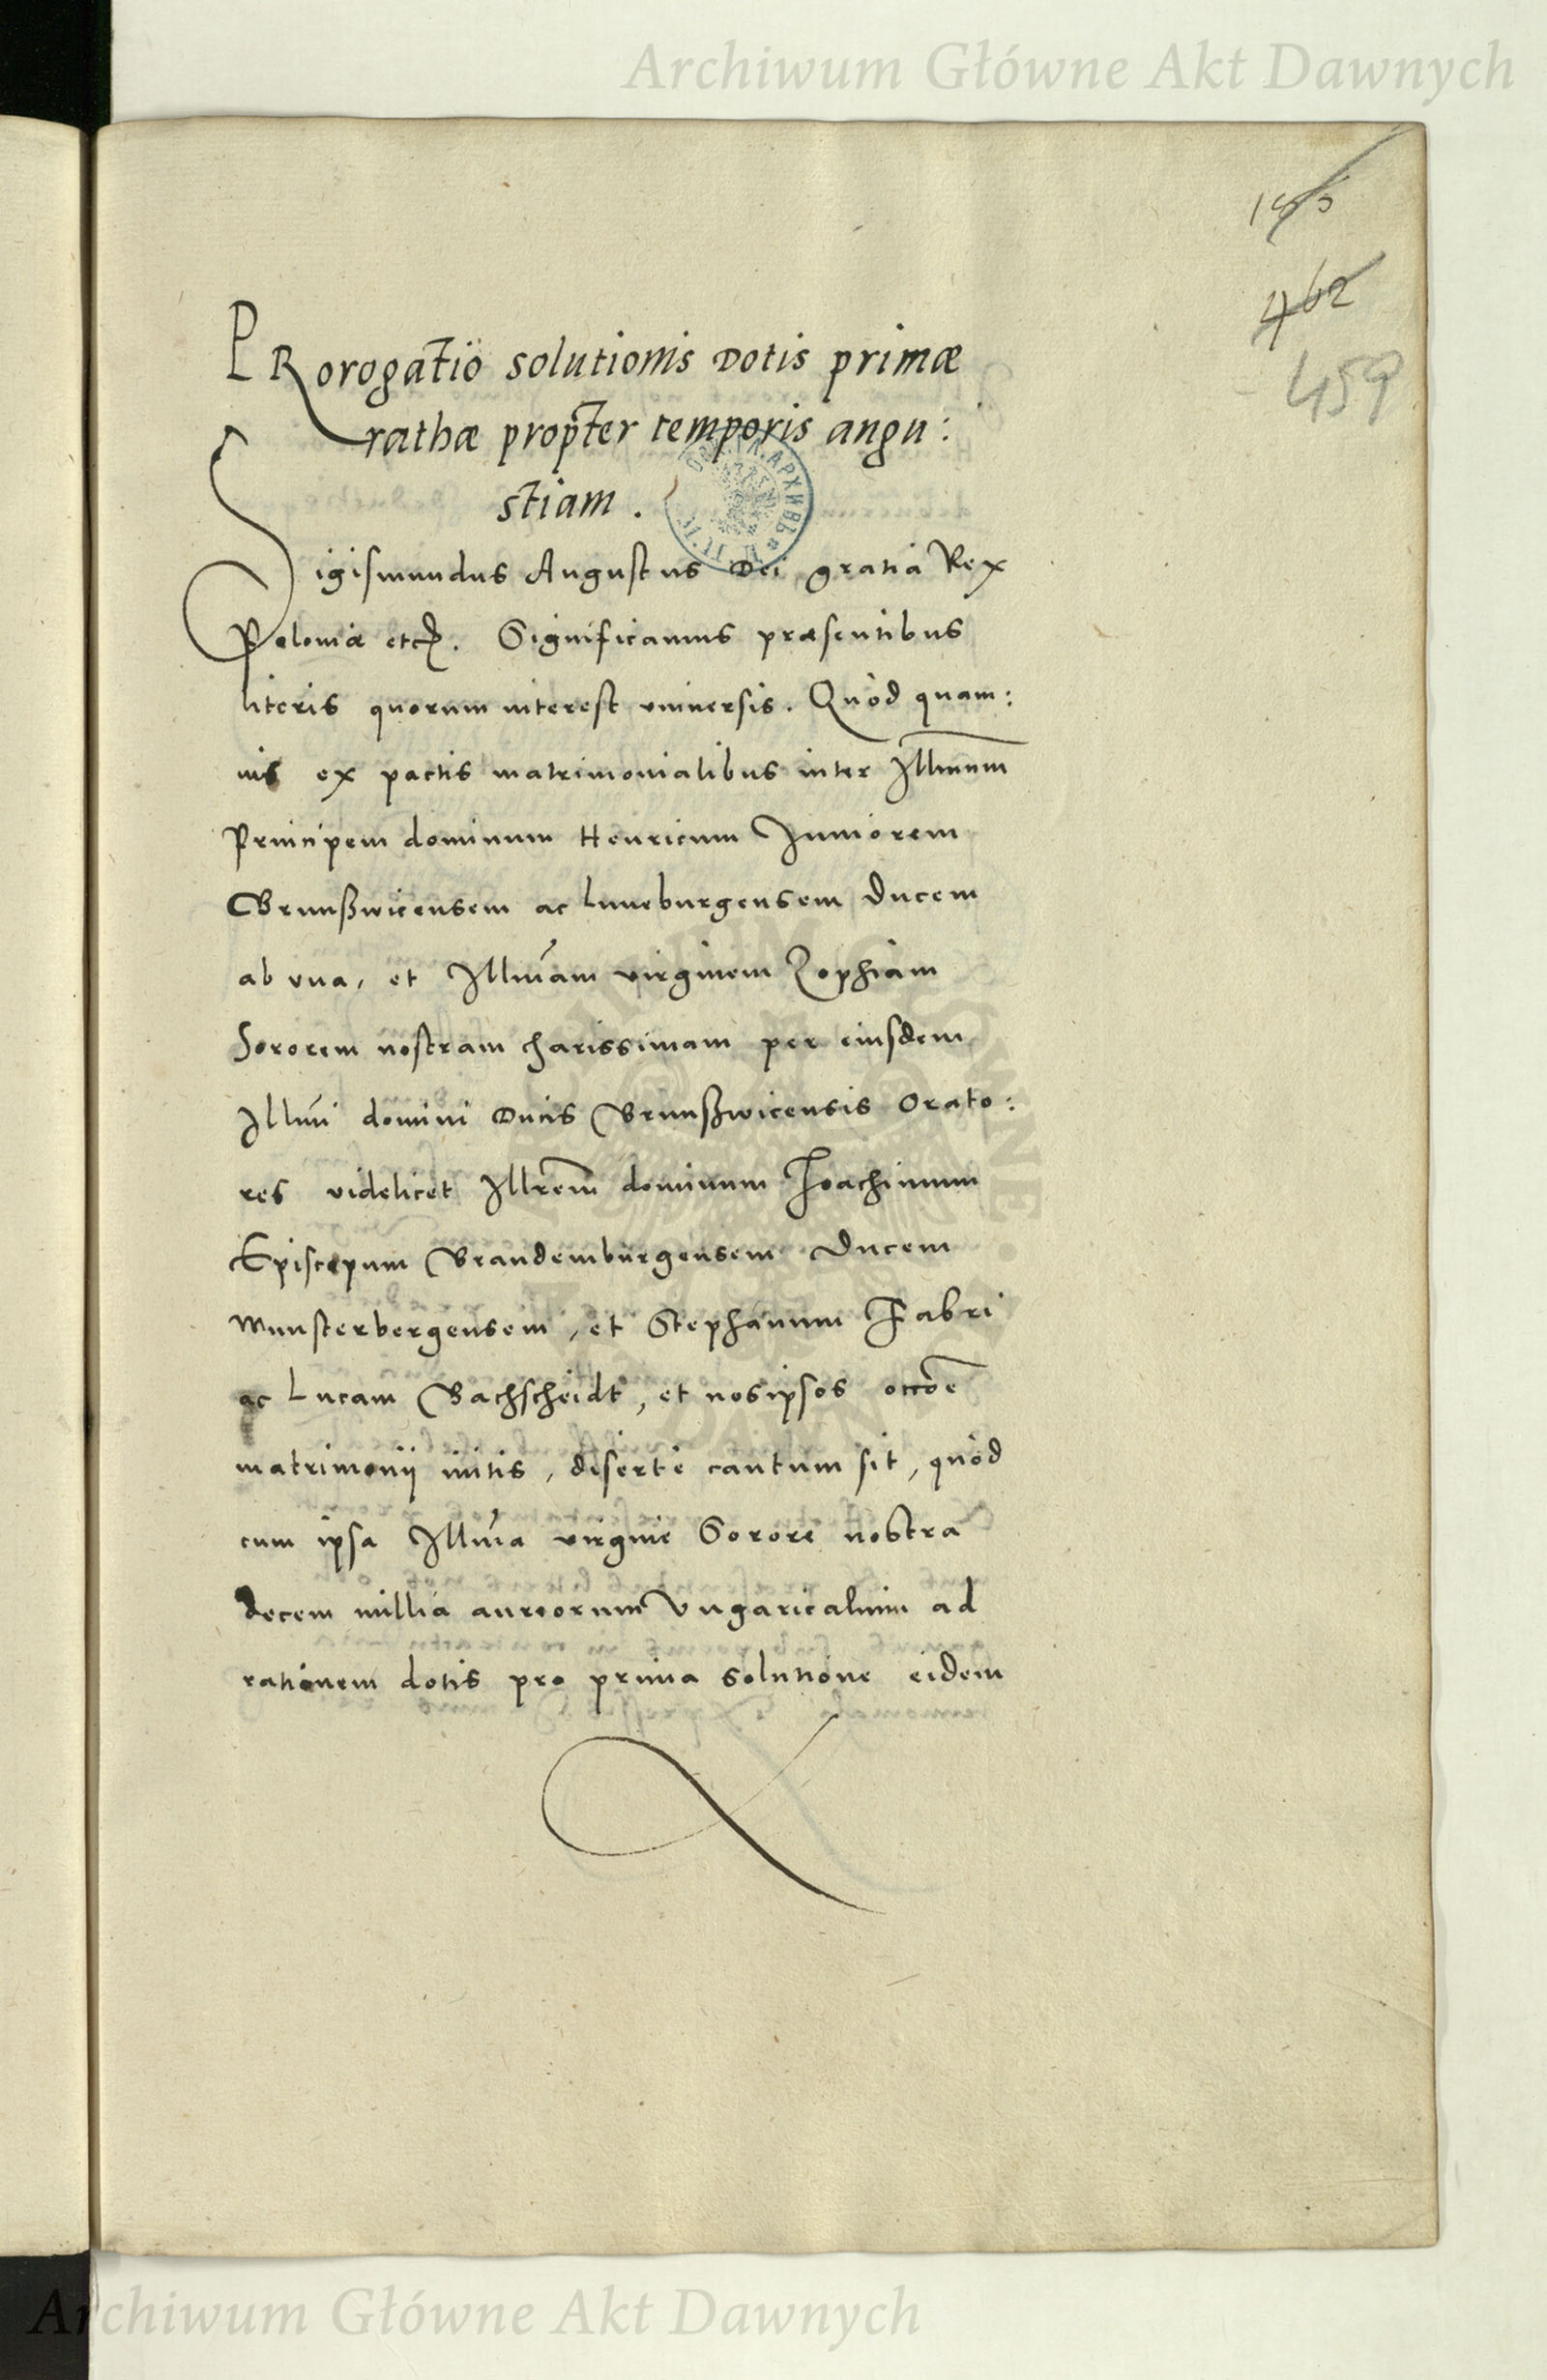 Archiwum Główne Akt Dawnych
462
459
PRorogatio solutionis Dotis primæ
rathæ propter temporis angu:
stiam.
Sigismundus Augustus Dei gratia Rex
Poloniæ etc. Significamus præsentibus
literis quorum interest vniuersis. Quòd quam:
uis ex pactis matrimonialibus inter Illmum
Principem dominum Henricum Iuniorem
Brunßwicensem ac Luneburgensem Ducem
ab vna, et Illmam virginem Zophiam
Sororem nostram charissimam per eiusdem
Illmi domini Ducis Brunßwicensis Orato:
res videlicet Illrem dominum Ioachimum
Episcopum Brandemburgensem Ducem
Munsterbergensem, et Stephanum Fabri
ac Lucam Bachscheidt, et nosipsos
matrimonij initis, disertè cautum sit, quòd
cum ipsa Illma virgine Sorore nostra
decem millia aureorum Vngaricalium ad
rationem dotis pro prima solutione eidem
Archiwum Główne Akt Dawnych